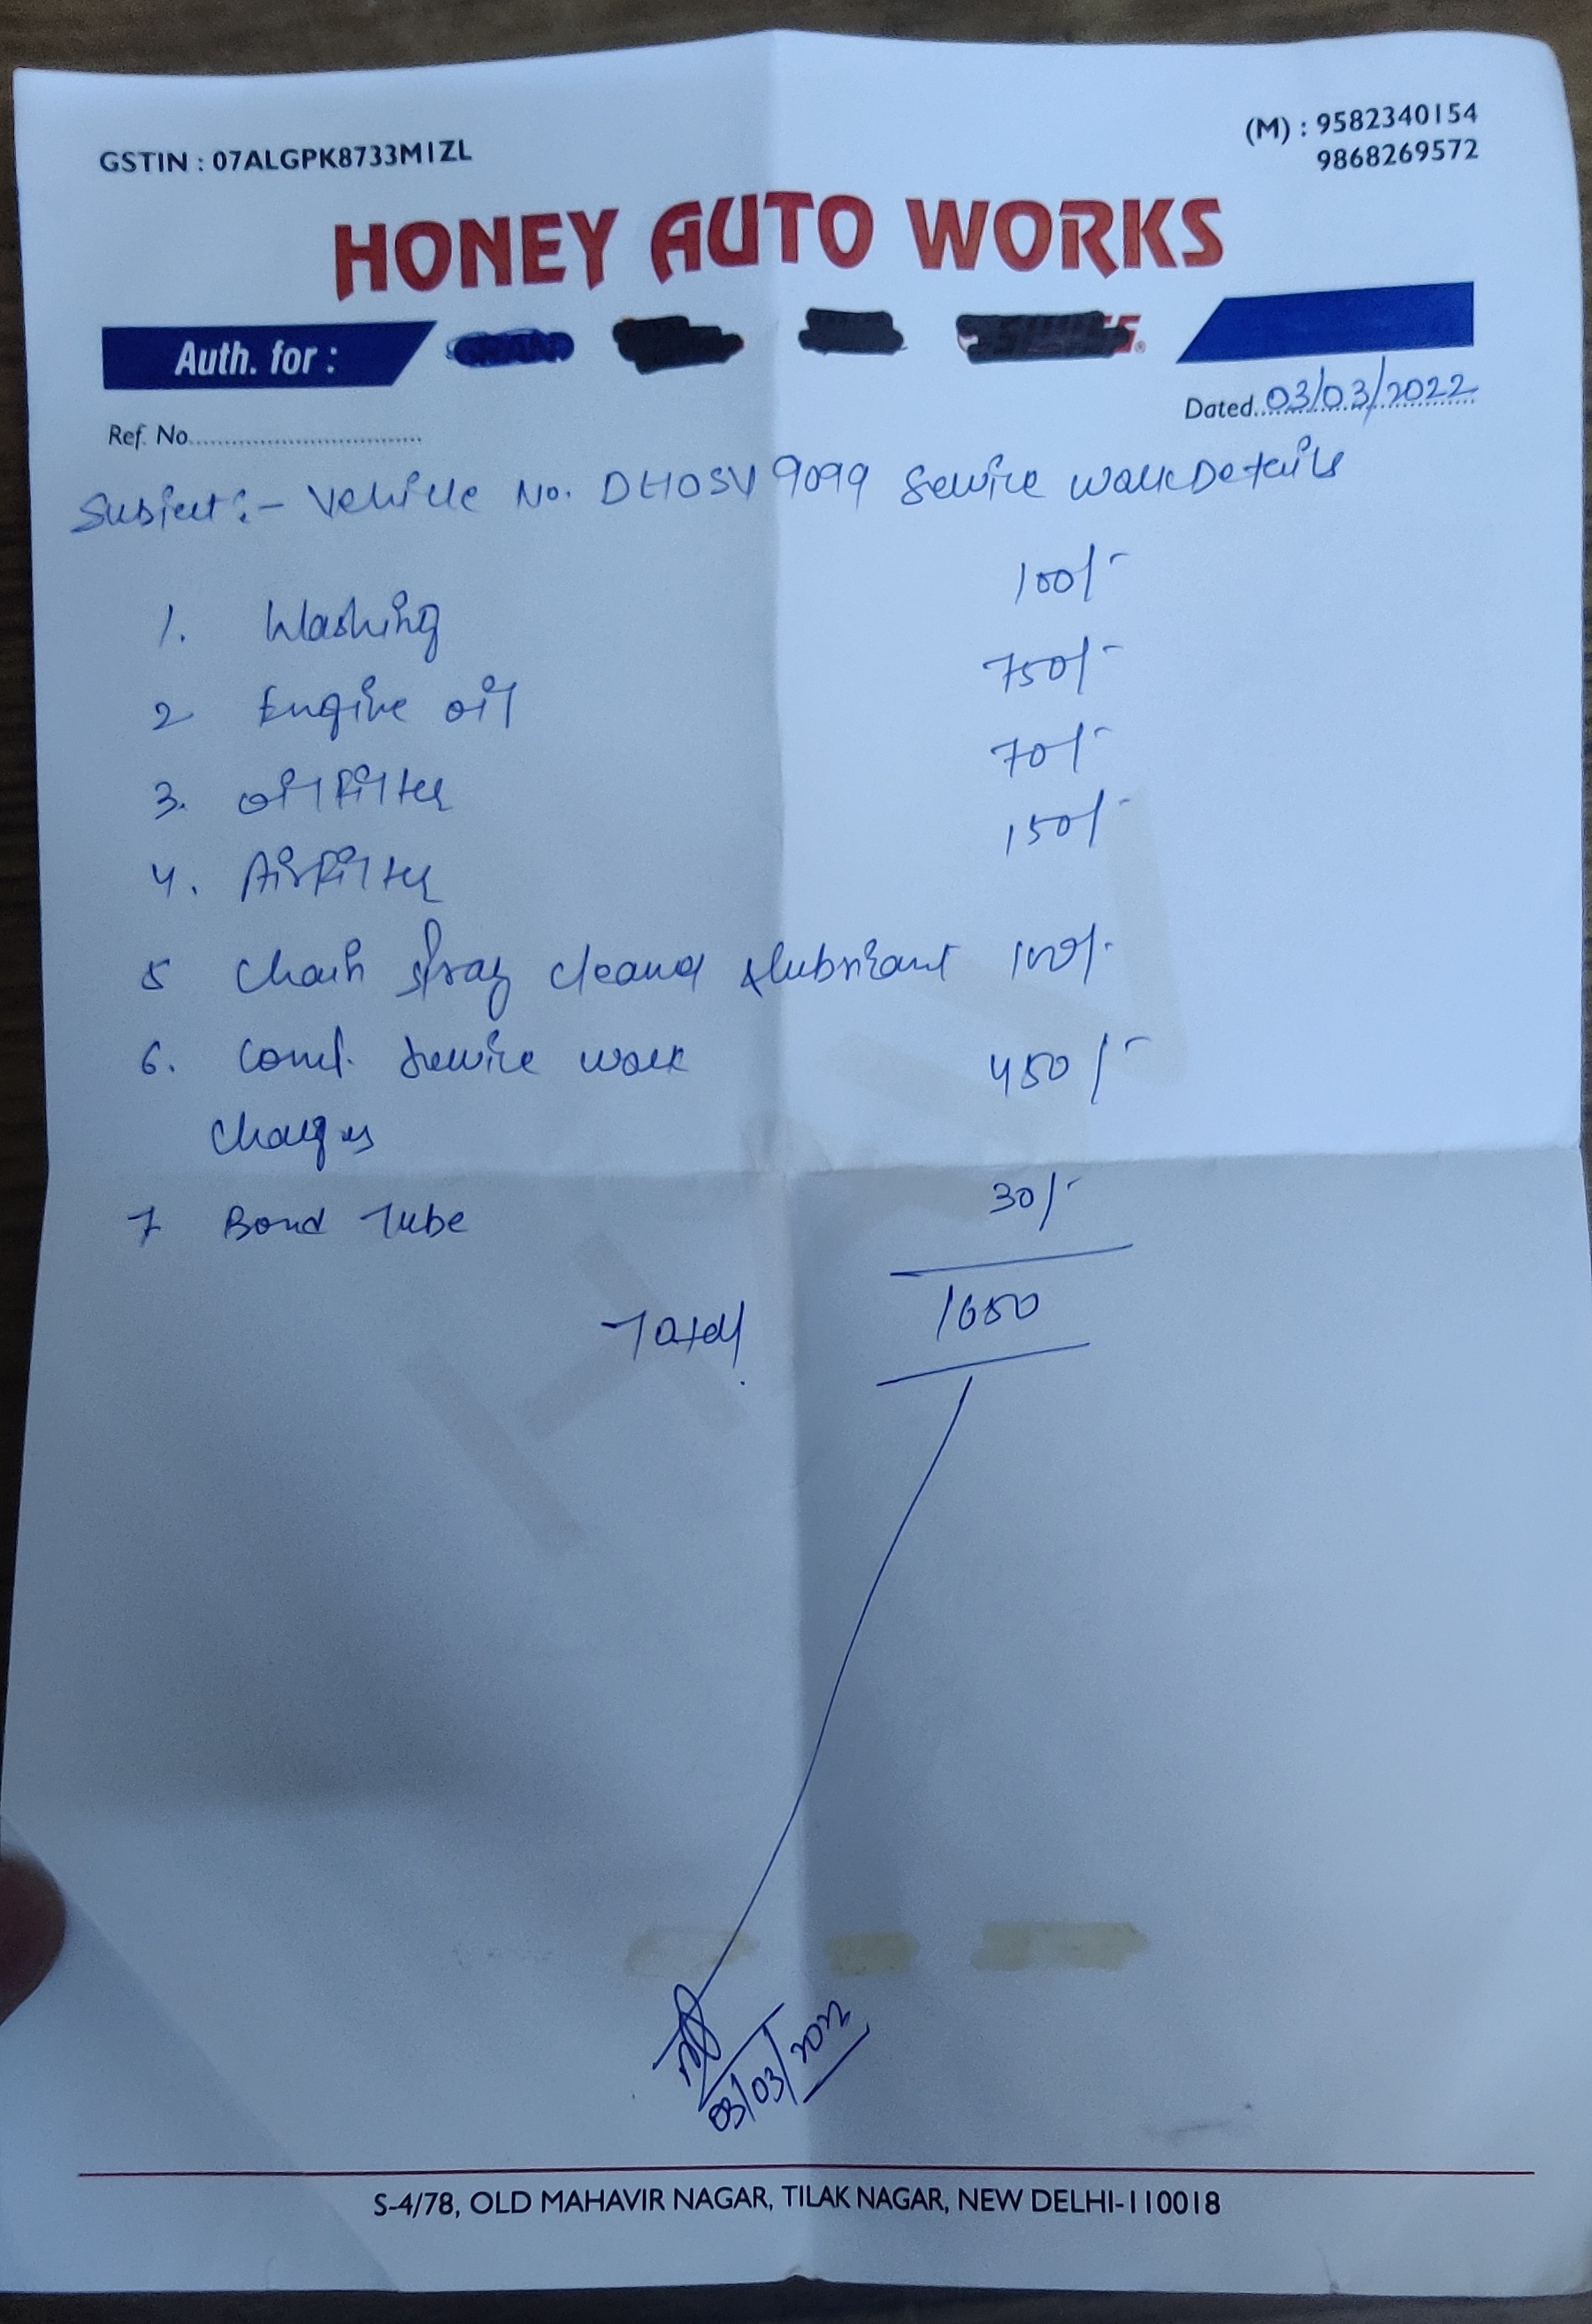 GSTIN : 07ALGPK8733M1ZL
(M) : 9582340154
9868269572
HONEY AUTO WORKS
Auth. for :
Ref. No.
Dated 03/03/2022
Subject :- Vehicle No. DL10SV9099 Service Work Details
1. Washing 100/-
2 Engine oil 750/-
3. oil Filter 70/-
4. Air Filter 150/-
5 Chain spray cleaner & lubricant 100/-
6. Comp. Service work 450/-
Charges
7 Bond Tube 30/-
Total 1650
03/03/2022
S-4/78, OLD MAHAVIR NAGAR, TILAK NAGAR, NEW DELHI-110018